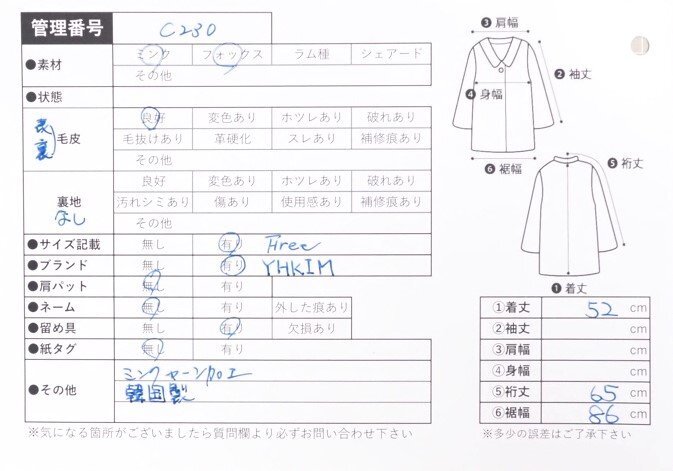 管理番号 C230
●素材 ミンク フォックス ラム種 シェアード
その他
●状態
表裏 毛皮 良好 変色あり ホツレあり 破れあり
毛抜けあり 革硬化 スレあり 補修痕あり
その他
裏地 なし 良好 変色あり ホツレあり 破れあり
汚れシミあり 傷あり 使用感あり 補修痕あり
その他
●サイズ記載 無し 有り Free
●ブランド 無し 有り YHKIM
●肩パット 無し 有り
●ネーム 無し 有り 外した痕あり
●留め具 無し 有り 欠損あり
●紙タグ 無し 有り
●その他 ミンクヤーン加工
韓国製
※気になる箇所がございましたら質問欄より必ずお問い合わせ下さい
❸肩幅
❷袖丈
❹身幅
❻裾幅
❺裄丈
❶着丈
①着丈 52 cm
②袖丈 cm
③肩幅 cm
④身幅 cm
⑤裄丈 65 cm
⑥裾幅 86 cm
※多少の誤差はご了承下さい